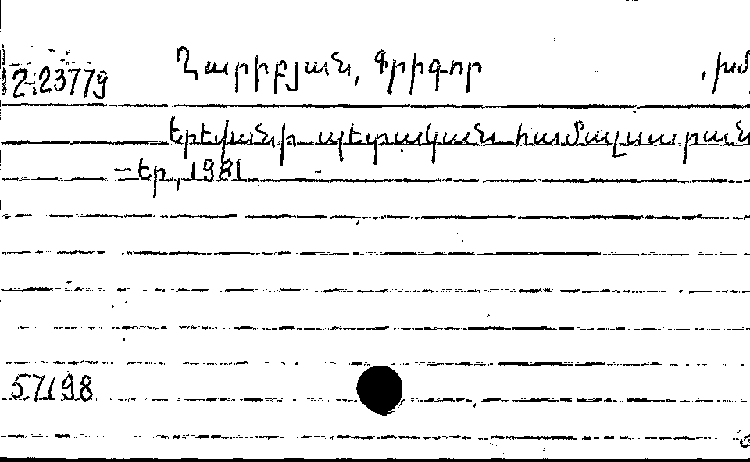 2-23779 Ղարիբյան, Գրիգոր , խմ
Երևանի պետական համալսարան
– Եր, 1981
57198